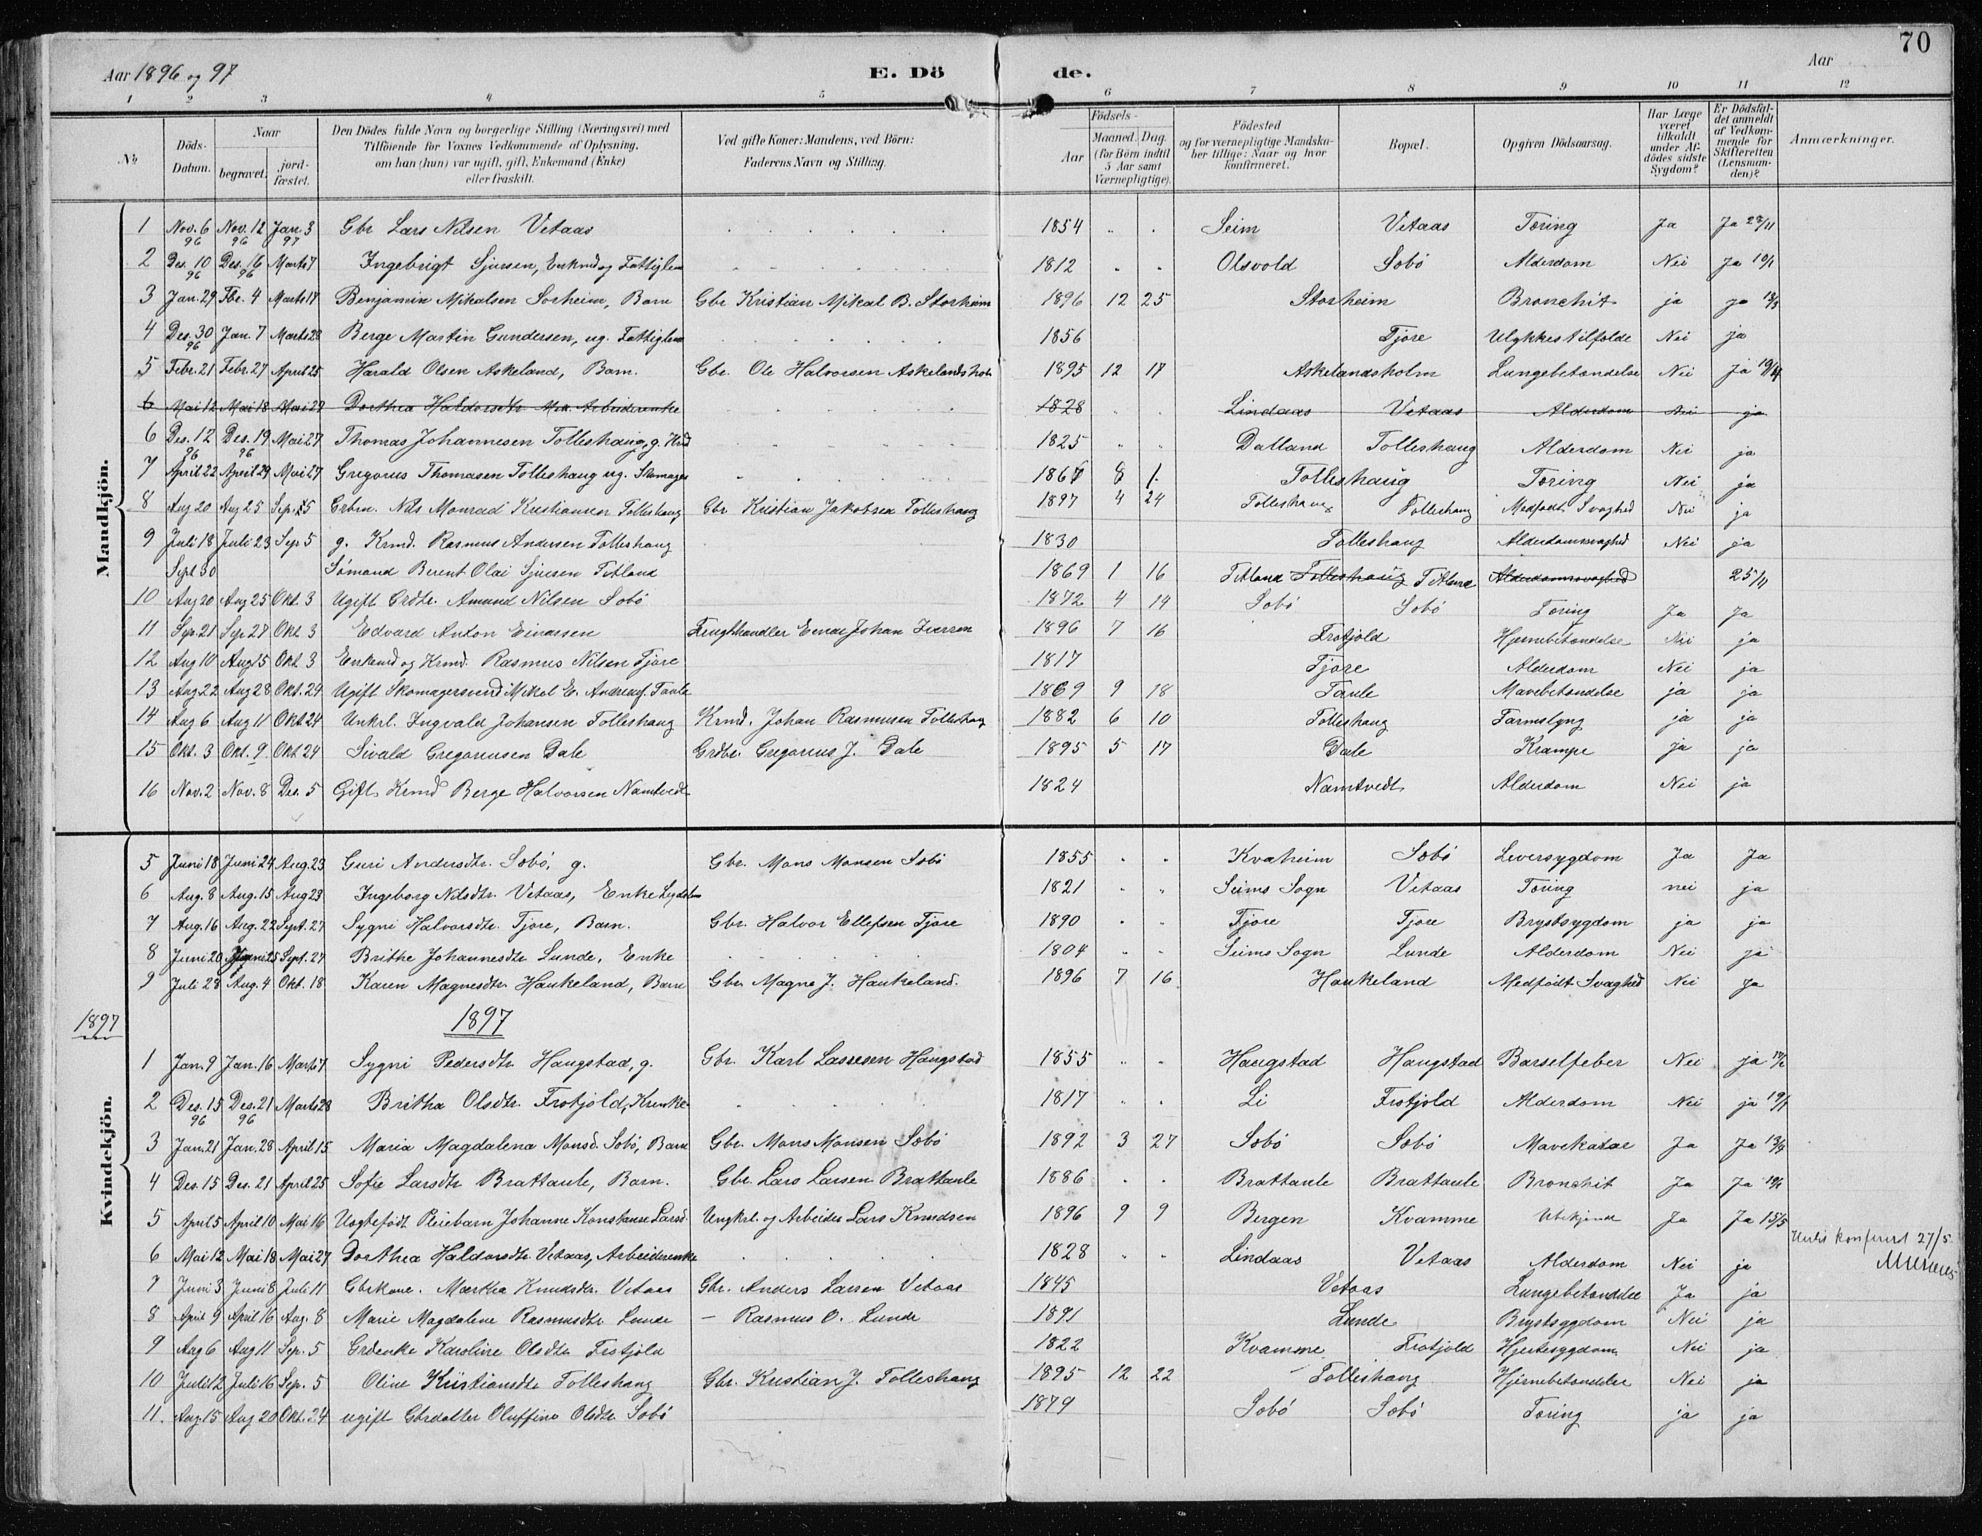 70
Aar 1896 og 97 E. Dö de. Aar
1 2 3 4 5 6 7 8 9 10 11 12
No Döds-Datum. Naar begravet. jord-fæstet. Den Dödes fulde Navn og borgerlige Stilling (Næringsvei) med Tilföiende for Voxnes Vedkommende af Oplysning, om han (hun) var ugift, gift, Enkemand (Enke) eller fraskilt. Ved gifte Koner: Mandens, ved Börn: Faderens Navn og Stilling. Födsels- Aar Maaned. Dag. (for Börn indtil 5 Aar samt Værnepligtige). Födested og for værnepligtige Mandskaber tillige: Naar og hvor konfirmeret. Bopæl. Opgiven Dödsaarsag. Har Læge været tilkaldt under Afdödes sidste Sygdom? Er Dödsfaldet anmeldt af Vedkommende for Skifteretten (Lensmanden)? Anmærkninger.
Mandkjön.
1 Nov. 6 96 Nov. 12 96 Jan. 3 97 Gbr Lars Nilsen Vetaas 1854 Seim Vetaas Tæring Ja Ja 23/11
2 Des. 10 96 Des. 16 96 Marts 7 Ingebrigt Sjursen, Enkmd og Fattiglem 1812 Olsvold Sobö Alderdom Nei Ja
3 Jan. 29 Fbr. 4 Marts 17 Benjamin Mikalsen Sorheim, Barn Gbr Kristian Mikal B. Storheim 1896 12 25 Storheim Bronchit ja ja
4 Des. 30 96 Jan. 7 Marts 28 Berge Martin Gundersen, ug. Fattiglem 1856 Tjore Ulykkestilfelde Nei ja
5 Febr. 21 Febr. 27 April 25 Harald Olsen Askeland, Barn. Gbr. Ole Halvorsen Askelandsholm 1895 12 17 Askelandsholm Lungebetændelse Nei Ja
6 Mai 12 Mai 18 Mai 29 Dorthea Haldorsdtr Arbeiderenke 1828 Lindaas Vetaas Alderdom Nei ja
6 Des. 12 96 Des. 19 96 Mai 27 Thomas Johannesen Tolleshaug, g. 1825 Dalland Tolleshaug Alderdom Nei ja
7 April 22 April 29 Mai 27 Gregorius Thomasen Tolleshaug ug. Skomager 1867 8 1. Tolleshaug Tæring Nei ja
8 Aug 20 Aug 25 Sep. 25 Grbrn. Nils Monrad Kristiansen Tolleshaug Gbr Kristian Jakobsen Tolleshaug 1897 4 24 Tolleshaug Tolleshaug Medfödt Svaghed Nei ja
9 Juli 18 Juli 23 Sep 5 g. Krmd. Rasmus Andersen Tolleshaug 1830 Tolleshaug Alderdomssvaghed Nei ja
Sept 30 Sømand Berent Olai Sjursen Titland 1869 1 16 Titland Tolleshaug Titland Alderdomssvaghed 25/11
10 Aug 20 Aug 25 Okt. 3 Ugift Grdbr. Amund Nilsen Sobö 1872 4 14 Sobö Sobö Tæring Ja Ja
11 Sep. 21 Sep 27 Okt 3 Edvard Anton Einarsen Einar Johan Iversen 1896 7 16 Frotjold Hjernebetændelse Nei ja
12 Aug 10 Aug 15 Okt 3 Enkemd og Krmd. Rasmus Nilsen Tjore 1817 Tjore Alderdom Nei ja
13 Aug 22 Aug 28 Okt. 24 Ugift Skomagersvend Mikal E. Andreasf. Taule 1869 9 18 Taule Mavebetændelse ja ja
14 Aug 6 Aug 11 Okt 24 Unkrl. Ingvald Johansen Tolleshaug Krmd. Johan Rasmusen Tolleshaug 1882 6 10 Tolleshaug Tarmslyng ja ja
15 Okt. 3 Okt. 9. Okt 24 Sivald Gregoriusen Dale Grdbr. Gregorius J. Dale 1895 5 17 Dale Krampe ja ja
16 Nov. 2 Nov. 8 Des. 5 Gift Krmd Berge Halvorsen Namtvedt 1824 Namtvedt Alderdom Nei ja
Kvindekjön.
5 Juni 18 Juni 24 Aug. 23 Guri Andersdtr. Sobö, g. Gbr. Mons Monsen Sobö 1855 Kvaheim Sobö Leversygdom Ja Ja
6 Aug. 8 Aug. 15 Aug 23 Ingeborg Nilsdtr. Vetaas, Enke 1821 Seims Sogn Vetaas Tæring nei ja
7 Aug. 16 Aug. 22 Sept. 27 Sygni Halvorsdtr. Tjore, Barn. Gbr. Halvor Ellefsen Tjore 1890 Tjore Tjore Brystsygdom ja ja
8 Juni 20 Juni 25 Sept. 27 Brithe Johannesdtr Lunde, Enke 1804 Seims Sogn Lunde Alderdom Nei ja
9 Juli 28 Aug. 4 Okt. 18 Karen Magnesdtr Haukeland, Barn Gbr Magne J. Haukeland. 1896 7 16 Haukeland Medfödt Svaghed Nei Ja
1897 1897
1 Jan. 9 Jan. 16 Marts 7 Sygni Pedersdtr Haugstad, g. Gbr. Karl Lassesen Haugstad 1855 Haugstad Haugstad Barselfeber Nei ja
2 Des. 15 96 Des. 21 96 Marts 28 Britha Olsdtr. Frotjold, Krenke 1817 Li Frotjold Alderdom Nei ja
3 Jan. 21 Jan. 28 April 15 Maria Magdalena Monsd. Sobö, Barn Gbr. Mons Monsen Sobö 1892 3 27 Sobö Sobö Mavekatar Ja Ja
4 Des. 15 Des. 21 April 25 Sofie Larsdtr Brattaule, Barn. Gbr. Lars Larsen Brattaule 1886 Brattaule Brattaule Bronchit Ja Ja
5 April 5 April 10 Mai 16 Uægtefödt Pleiebarn Johanne Konstanse Larsd. Ungkrl. og Arbeider Lars Knudsen 1896 9 9 Bergen Kvamme Ubekjendt Ja Ja 15/5
6 Mai 12 Mai 18 Mai 27 Dorthea Haldorsdtr. Vetaas, Arbeiderenke 1828 Lindaas Vetaas Alderdom Nei ja konfereret 27/5
7 Juni 3 Juni 8 Juli 11 Gbrkone. Martha Knudsdtr. Vetaas Gbr. Anders Larsen Vetaas 1845 Vetaas Lungebetændelse Ja ja
8 April 9 April 16 Aug. 8 Marie Magdalene Rasmusdtr Lunde — Rasmus O. Lunde 1891 Lunde Brystsygdom Nei ja
9 Aug 6 Aug 11 Sep. 5 Grdenke Karoline Olsdtr Frotjold 1822 Kvamme Frotjold Hjertesygdom Nei ja
10 Juli 12 Juli 16 Sep. 5 Oline Kristiansdtr Tolleshaug Gbr. Kristian J. Tolleshaug 1895 12 22 Tolleshaug Hjernebetændelse Nei ja
11. Aug. 15 Aug 20 Okt. 24 ugift Gbrdatter Oluffine Olsdtr Sobö 1879 Sobö Sobö Tæring ja ja